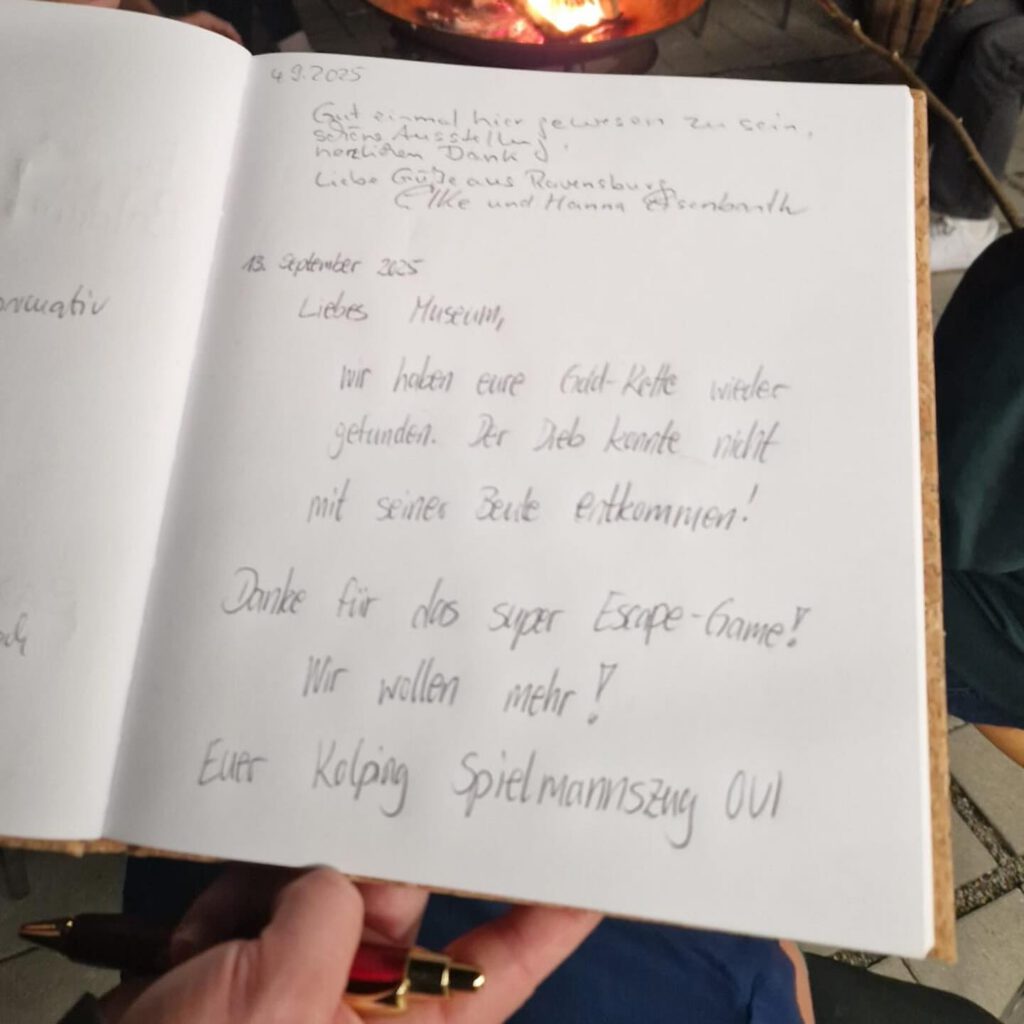 4.9.2025
Gut einmal hier gewesen zu sein,
schöne Ausstellung,
herzlichen Dank
Liebe Grüße aus Ravensburg
Elke und Hanna Eisenbarth
13. September 2025
Liebes Museum,
wir haben eure Gold-Kette wieder
gefunden. Der Dieb konnte nicht
mit seiner Beute entkommen!
Danke für das super Escape-Game!
Wir wollen mehr!
Euer Kolping Spielmannszug OUI